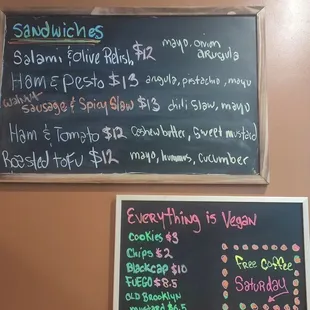 Sandwiches
Salami & olive Relish $12 mayo, onion
arugula
Ham & Pesto $13 arugula, pistachio, mayo
walnut
sausage & Spicy Slaw $13 dill slaw, mayo
Ham & Tomato $12 Cashew butter, Sweet mustard
Roasted tofu $12 mayo, hummus, cucumber
Everything is Vegan
Cookies $3
Chips $2
Blackcap $10
FUEGO $8.5
OLD Brooklyn
mustard $6.5
Free Coffee
Saturday